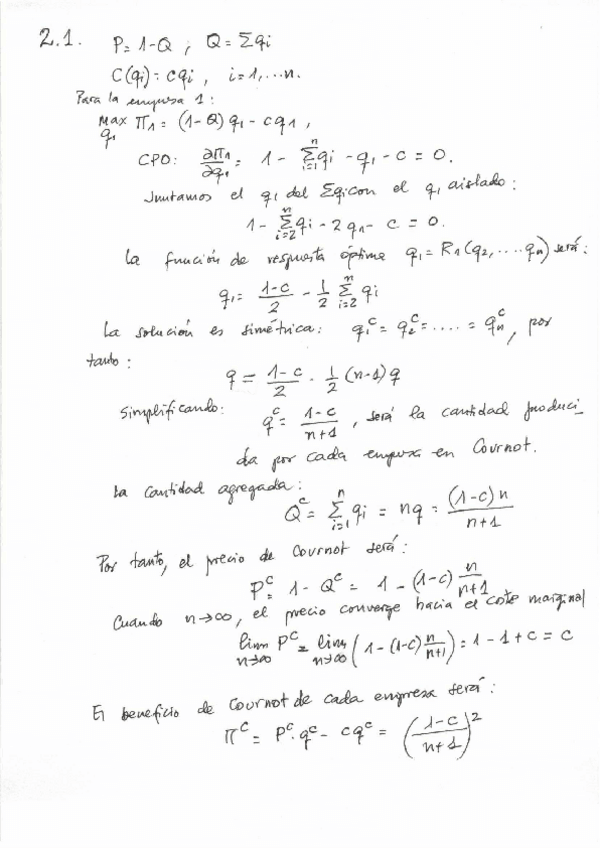 2.1. P = 1-Q ; Q = Σqi
C(qi) = cqi , i = 1, ...n.
Para la empresa 1:
Max_{q1} Π1 = (1-Q) q1 - cq1 ,
CPO: ∂Π1/∂q1 = 1 - Σ_{i=1}^{n} qi - q1 - c = 0.
Juntamos el q1 del Σqi con el q1 aislado:
1 - Σ_{i=2}^{n} qi - 2q1 - c = 0.
La función de respuesta óptima q1 = R1(q2, ....qn) será:
q1 = (1-c)/2 - 1/2 Σ_{i=2}^{n} qi
La solución es simétrica: q1^C = q2^C = .... = qn^C, por
tanto:
q = (1-c)/2 - 1/2 (n-1)q
Simplificando: q^C = (1-c)/(n+1) , será la cantidad produci-
da por cada empresa en Cournot.
La cantidad agregada:
Q^C = Σ_{i=1}^{n} qi = nq = (1-c)n/(n+1)
Por tanto, el precio de Cournot será:
P^C = 1 - Q^C = 1 - (1-c) n/(n+1)
Cuando n→∞, el precio converge hacia el coste marginal
lim_{n→∞} P^C = lim_{n→∞} (1 - (1-c) n/(n+1)) = 1 - 1 + c = c
El beneficio de Cournot de cada empresa será:
Π^C = P^C·q^C - cq^C = ((1-c)/(n+1))^2